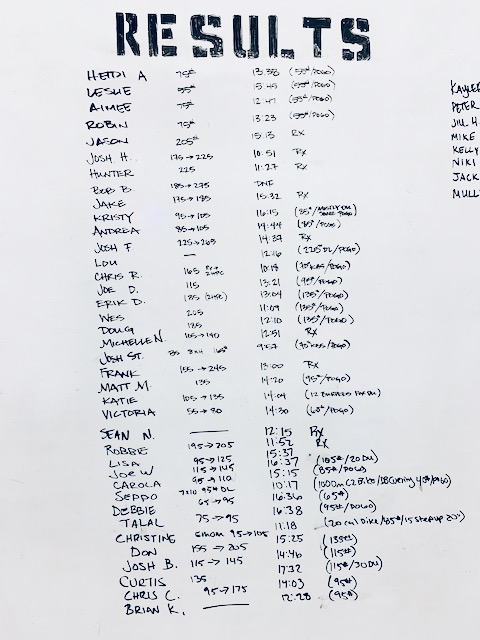 RESULTS
HEIDI A 75# 13:38 (55#/POGO)
LESLIE 55# 15:45 (55#/POGO)
AIMEE 75# 12:47 (55#/POGO)
ROBIN 75# 13:23 (55#/POGO)
JASON 205# 15:13 RX
JOSH H. 175→225 10:51 RX
HUNTER 225 11:27 RX
BOB B. 185→275 DNF
JAKE 175→185 15:32 RX
KRISTY 95→105 16:15 (85#
ANDREA 85→105 14:44 (85#/POGO)
JOSH F 225→265 14:37 RX
LOU — 12:16 (225# DL/POGO)
CHRIS R. 165 10:18
JOE D. 115 13:21 (95#/POGO)
ERIK D. 185 13:04 (135#/POGO)
WES 205 11:09 (135#/POGO)
DOUG 185 12:10 (135#/POGO)
MICHELLE N. 105→140 12:51 RX
JOSH ST. 165# 9:57
FRANK 155→245 13:00 RX
MATT M. 135 14:20 (95#/POGO)
KATIE 105→135 14:04 (12 BURPEES
VICTORIA 55→80 14:30 (60#/POGO)
SEAN N. — 12:15 RX
ROBBIE 195→205 11:52 RX
LISA 95→125 15:37
JOE W 115→145 16:37 (185#/20 DU)
CAROLA 95→110 15:15 (85#/POGO)
SEPPO 95# DL 10:17 (1000m C2 Bike/
DEBBIE 65→95 16:36 (65#)
TALAL 75→95 16:38 (95#/POGO)
CHRISTING 95→105 11:18 (20 cal bike/85#/15 step up 20#)
DON 155→205 15:25 (135#)
JOSH B. 115→145 14:46 (115#)
CURTIS 135 17:32 (115#/30 DU)
CHRIS C. 95→175 14:03 (95#)
BRIAN K. — 12:28 (95#)
KAYLEE
PETER
JILL H.
MIKE
KELLY
NIKI
JACK
MULL